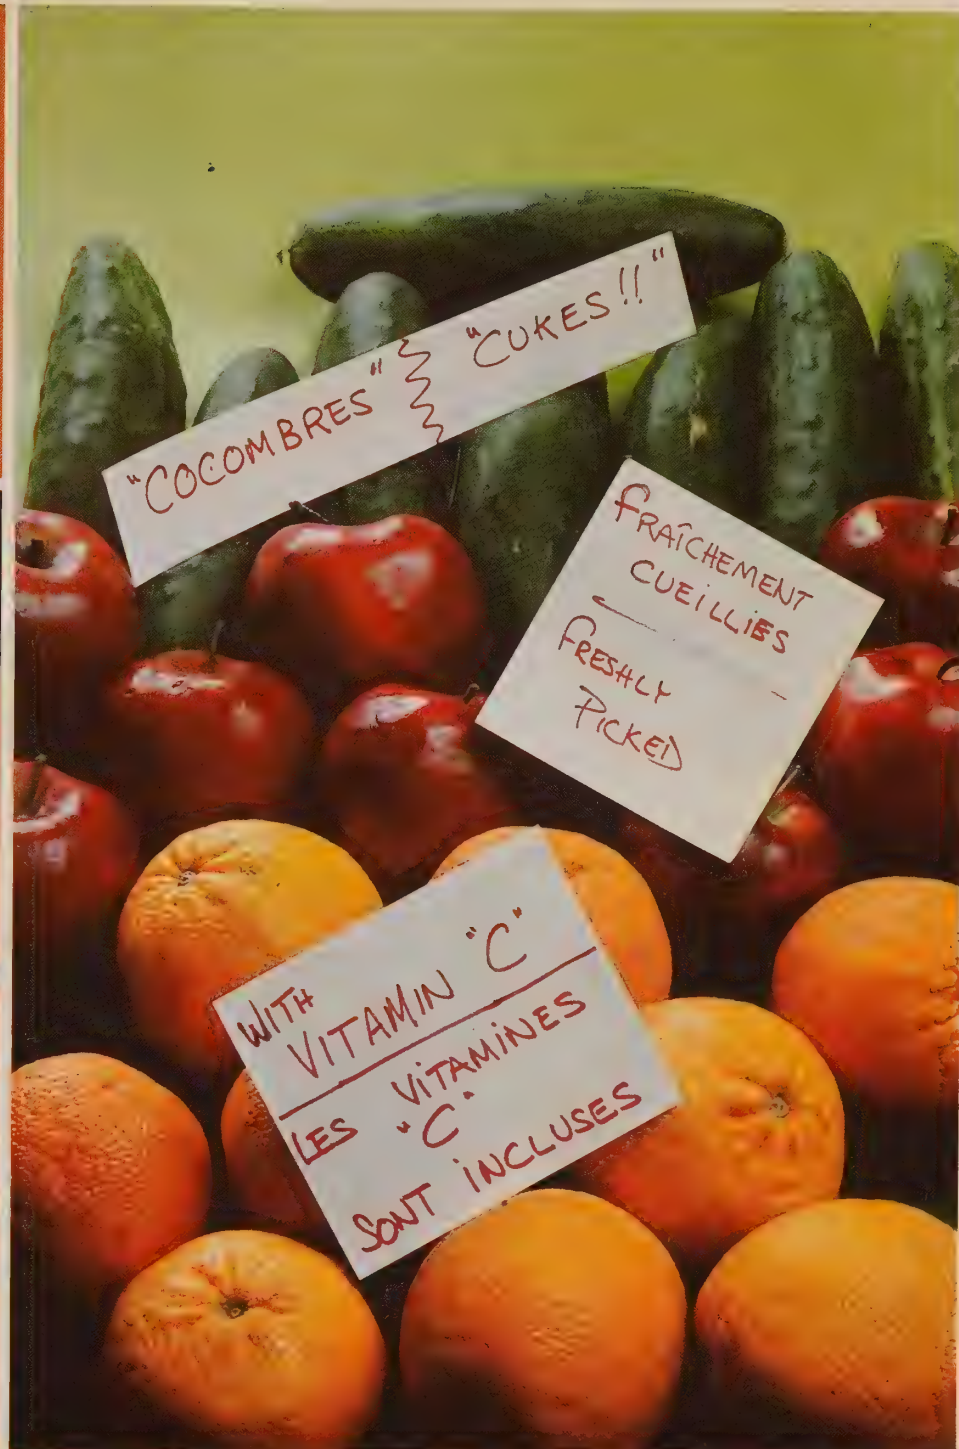 "COCOMBRES" "CUKES!!"
FRAÎCHEMENT
CUEILLIES
FRESHLY
PICKED
WITH
VITAMIN "C"
LES VITAMINES
"C"
SONT INCLUSES